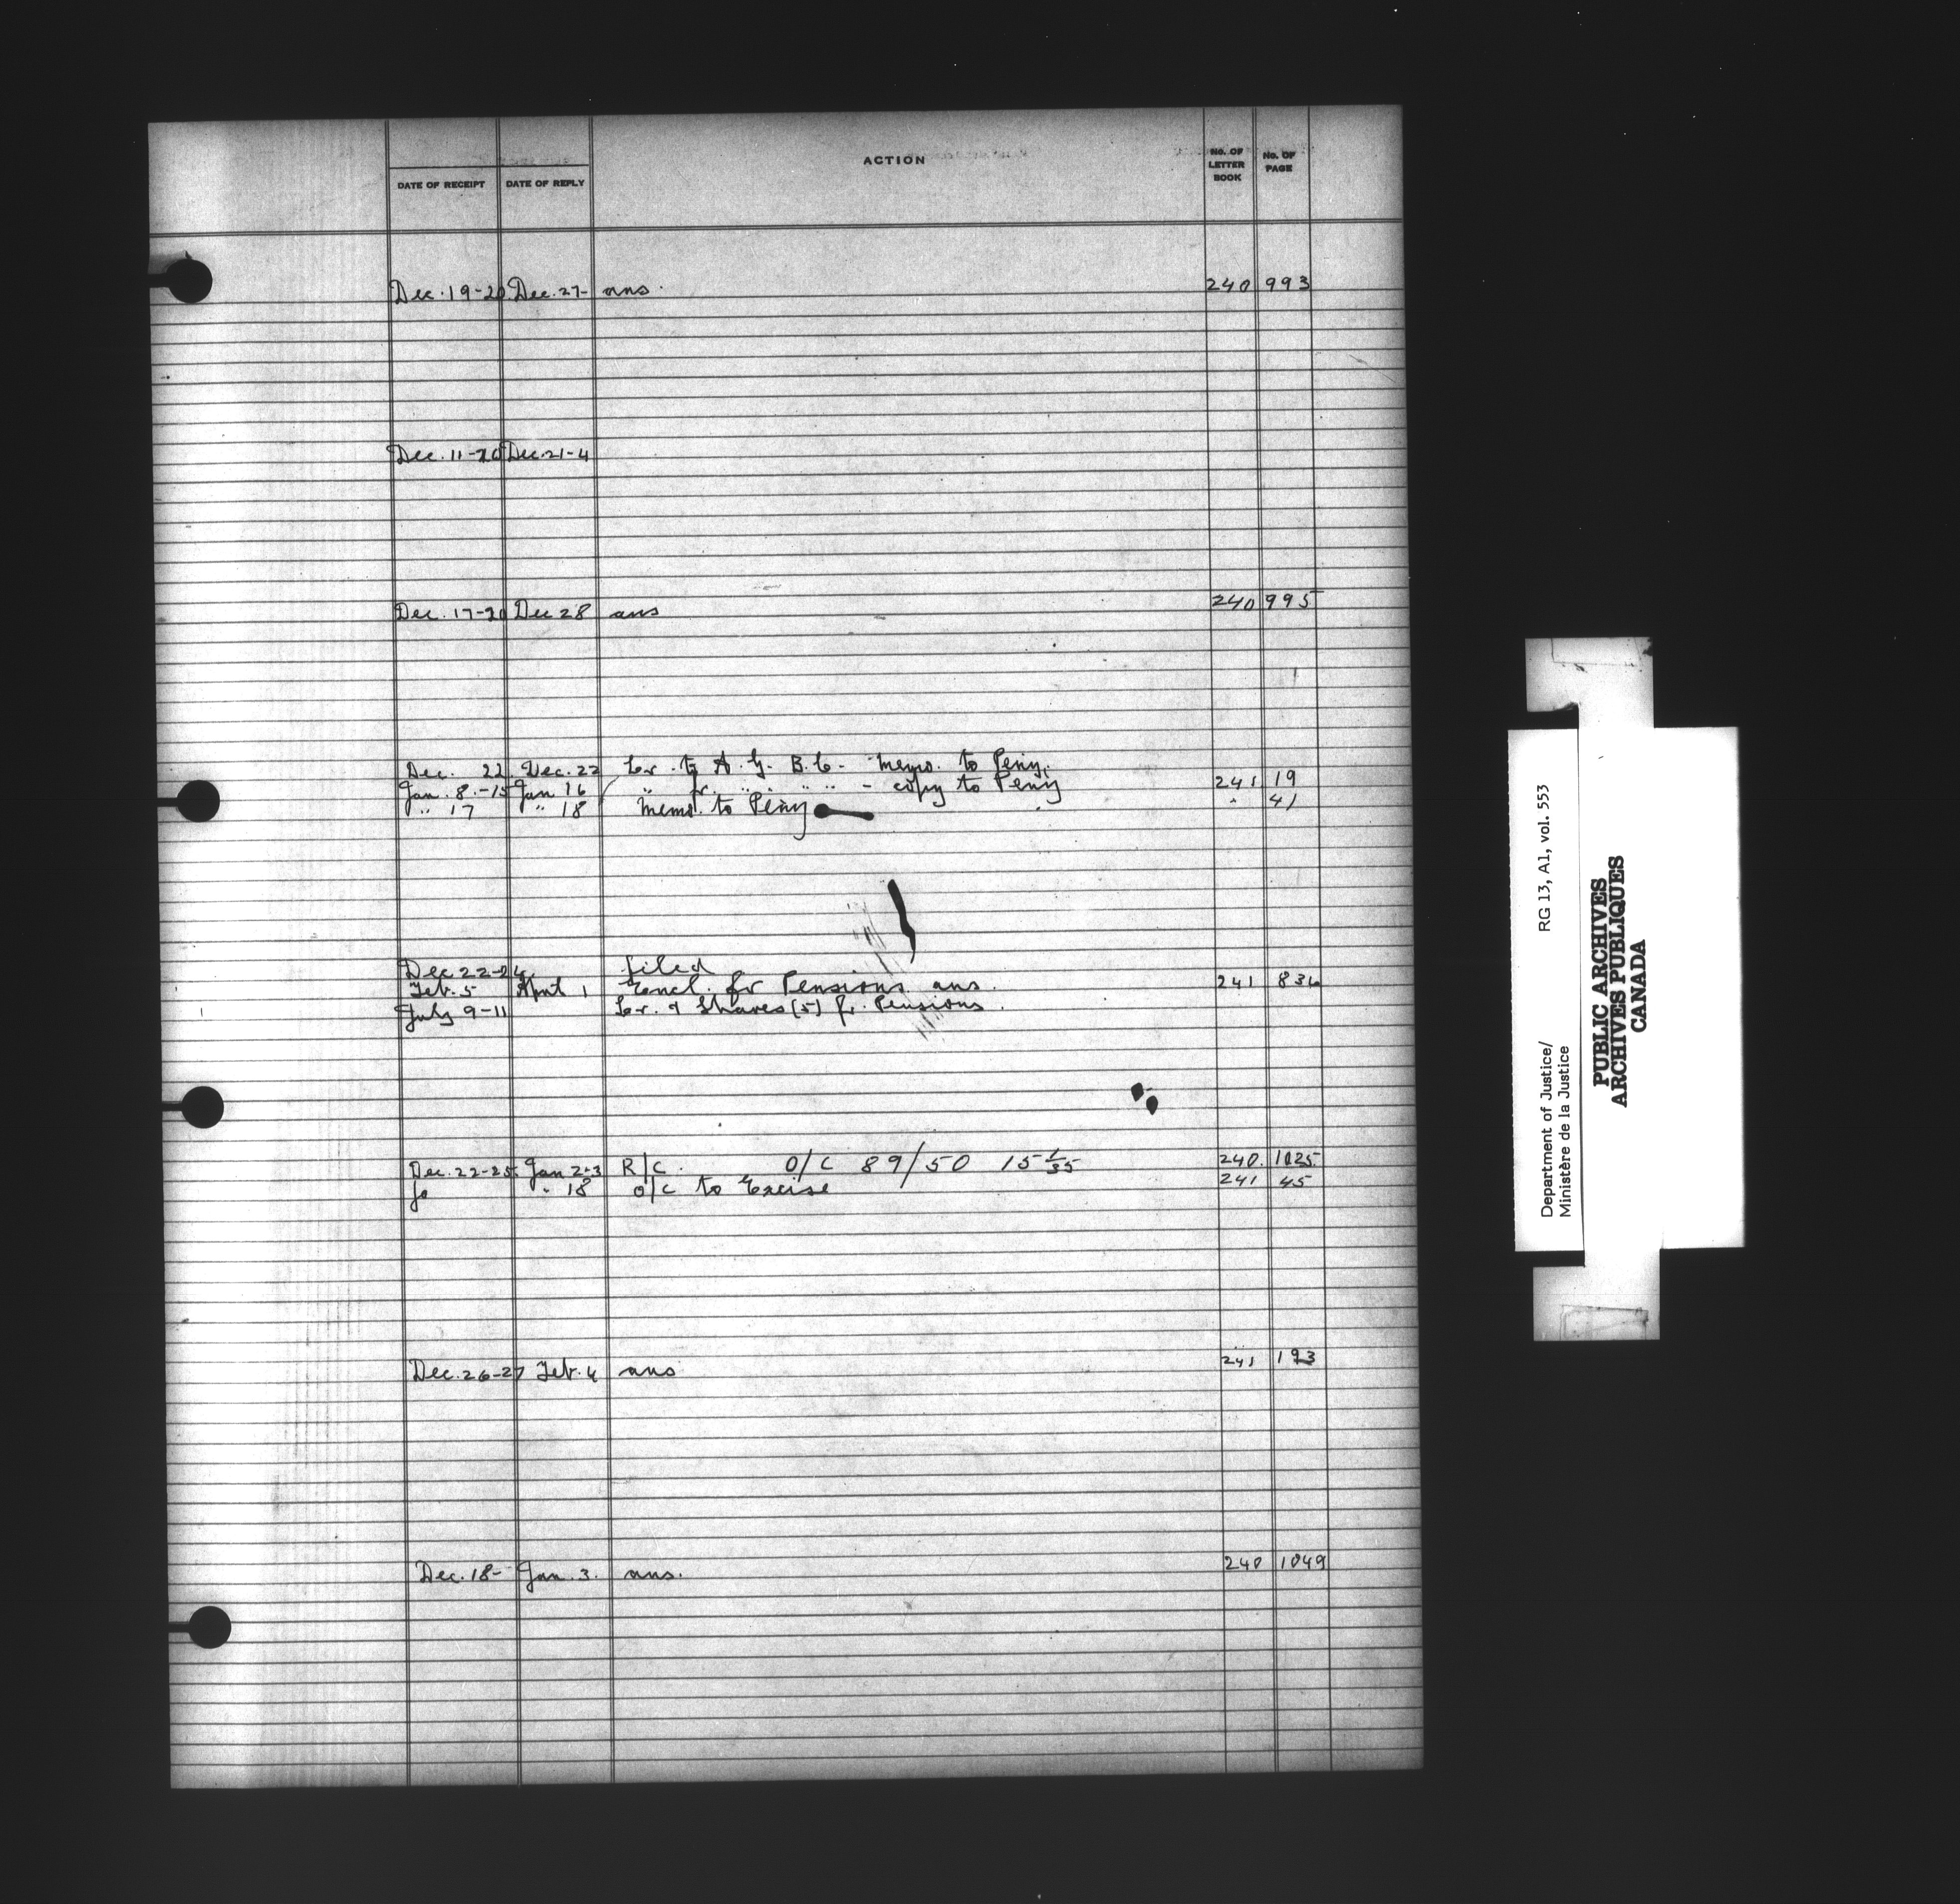 ACTION
No. OF LETTER BOOK
No. OF PAGE
DATE OF RECEIPT DATE OF REPLY
Dec. 19-20 Dec. 27- ans. 240 993
Dec. 11-20 Dec. 21-4
Dec. 17-20 Dec 28 ans 240 995
Dec. 22. Dec. 22 Ler. to A. G. B.C. - Memo. to Peny.
Jan. 8.-15 Jan 16 " fr. " " " " - copy to Peny 241 19
" 17 " 18 Memo. to Peny " 41
Dec 22-24 filed
Feb. 5 April 1 encl. fr Pensions ans. 241 836
July 9-11 Ler. & Shares (5) fr. Pensions.
Dec. 22-25. Jan 2-3 R/C. O/C 89/50 15 1/35 240. 1025.
" 18 o/c to Excise 241 45
Dec. 26-27 Feb. 4 ans 241 193
Dec. 18- Jan. 3. ans. 240 1049
Department of Justice/ RG 13, A1, vol. 553
Ministère de la Justice
PUBLIC ARCHIVES
ARCHIVES PUBLIQUES
CANADA